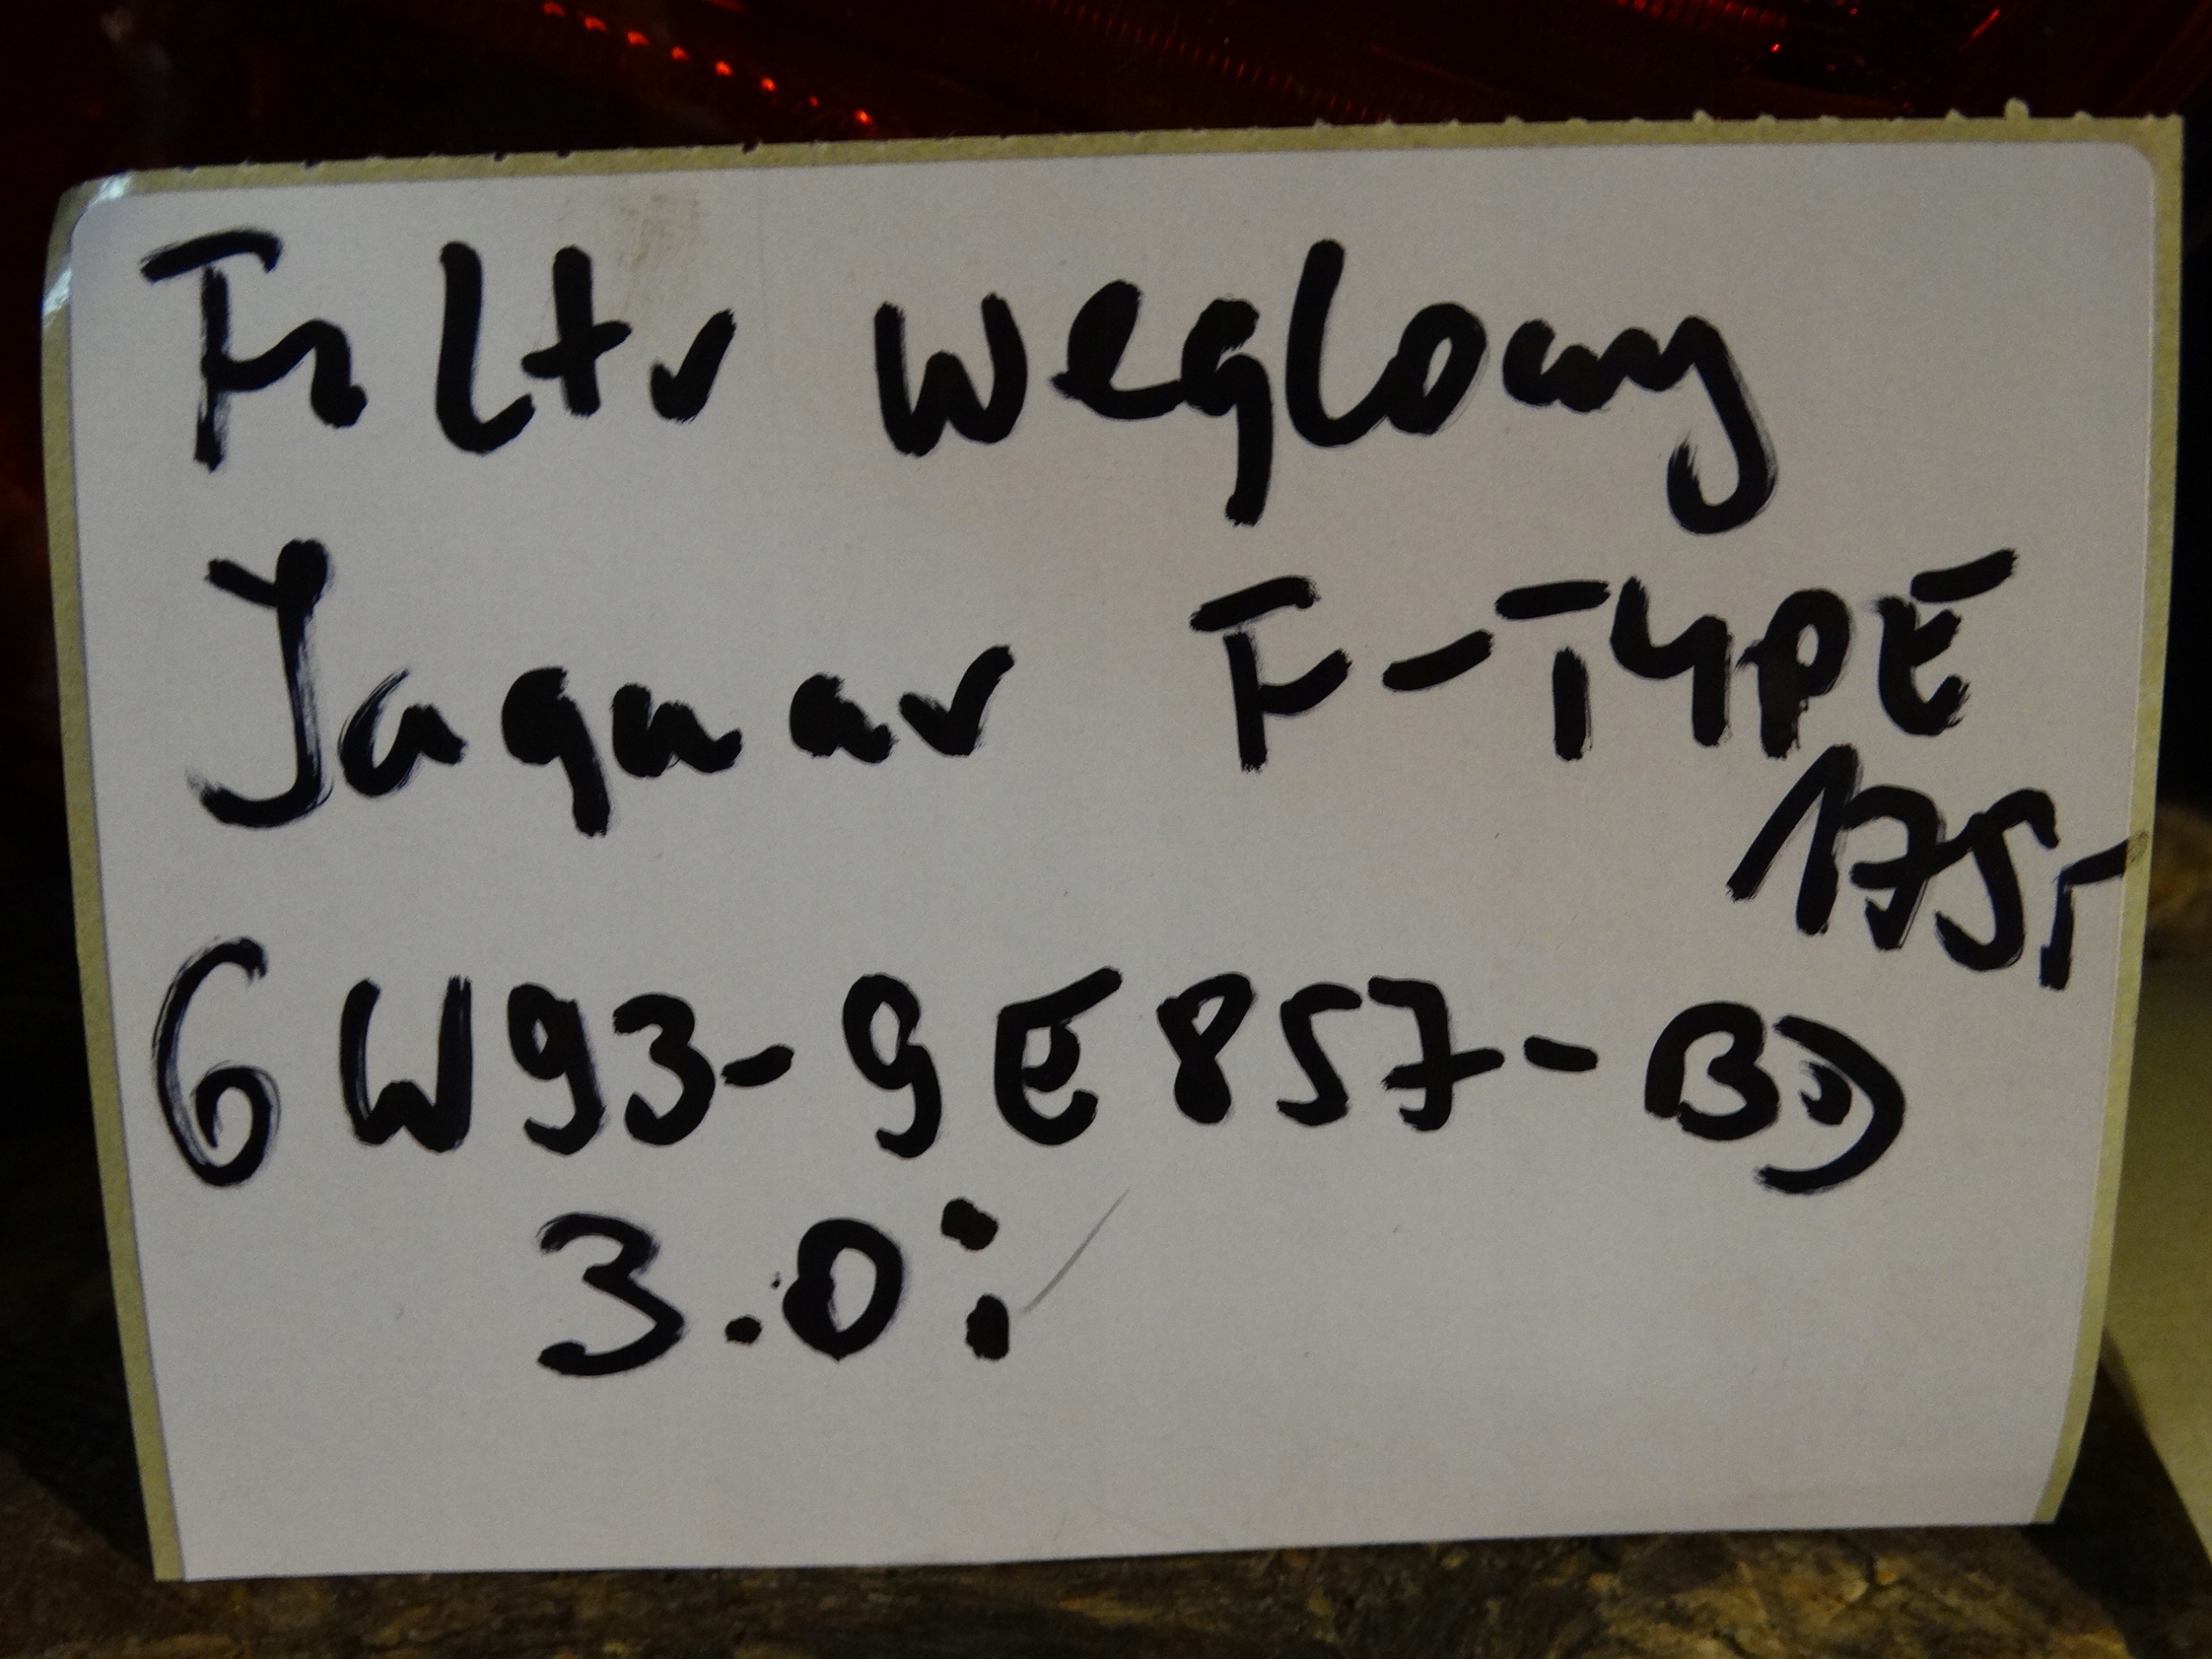 Filtr węglowy
Jaguar F-TYPE
17Sr
6W93-9E857-BD
3.0i